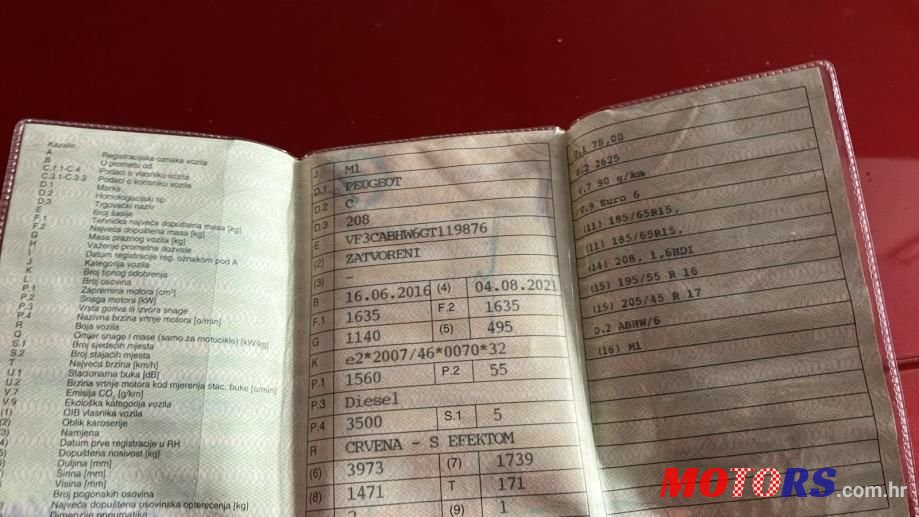 Kazalo:
A Registracijska oznaka vozila
B U prometu od
C.1.1-C.4 Podaci o vlasniku vozila
C.3.1-C.3.3 Podaci o korisniku vozila
D.1 Marka
D.2 Homologacijski tip
D.3 Trgovački naziv
E Broj šasije
F.1 Tehnička najveća dopuštena masa [kg]
F.2 Najveća dopuštena masa [kg]
G Masa praznog vozila [kg]
H Važenje prometne dozvole
I Datum registracije reg. oznakom pod A
J Kategorija vozila
K Broj tipnog odobrenja
L Broj osovina
P.1 Zapremina motora [cm³]
P.2 Snaga motora [kW]
P.3 Vrsta goriva ili izvora snage
P.4 Nazivna brzina vrtnje motora [o/min]
R Boja vozila
Q Omjer snage i mase (samo za motocikle) [kW/kg]
S.1 Broj sjedećih mjesta
S.2 Broj stajaćih mjesta
T Najveća brzina [km/h]
U.1 Stacionarna buka [dB]
U.2 Brzina vrtnje motora kod mjerenja stac. buke [o/min]
V.7 Emisija CO₂ [g/km]
V.9 Ekološka kategorija vozila
(1) OIB vlasnika vozila
(2) Oblik karoserije
(3) Namjena
(4) Datum prve registracije u RH
(5) Dopuštena nosivost [kg]
(6) Duljina [mm]
Širina [mm]
Visina [mm]
Broj pogonskih osovina
Najveća dopuštena osovinska opterećenja [kg]
Dimenzije pneumatika
J M1
D.1 PEUGEOT
D.2 C
D.3 208
E VF3CABHW6GT119876
(2) ZATVORENI
(3) –
B 16.06.2016 (4) 04.08.2021
F.1 1635 F.2 1635
G 1140 (5) 495
K e2*2007/46*0070*32
P.1 1560 P.2 55
P.3 Diesel
P.4 3500 S.1 5
R CRVENA - S EFEKTOM
(6) 3973 (7) 1739
(8) 1471 T 171
2 (9) 1
75,00
2625
V.7 90 g/km
V.9 Euro 6
(11) 185/65R15,
(11) 185/65R15,
(14) 208, 1,6HDI
(15) 195/55 R 16
(15) 205/45 R 17
D.2 ABHW/6
(16) M1
MOTORS.com.hr